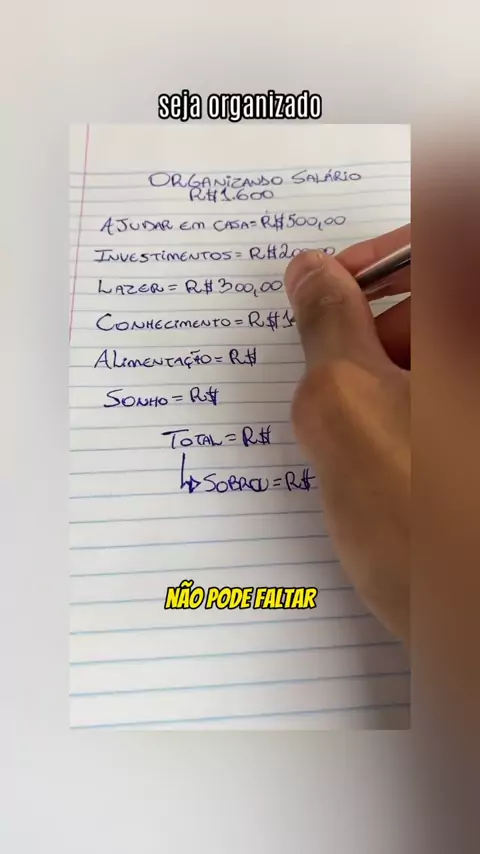 seja organizado
ORGANIZANDO SALÁRIO
R$1.600
AJUDAR EM CASA=R$500,00
INVESTIMENTOS=
LAZER=R$300,00
CONHECIMENTO=
ALIMENTAÇÃO=R$
SONHO=R$
TOTAL=R$
SOBROU=R$
NÃO PODE FALTAR